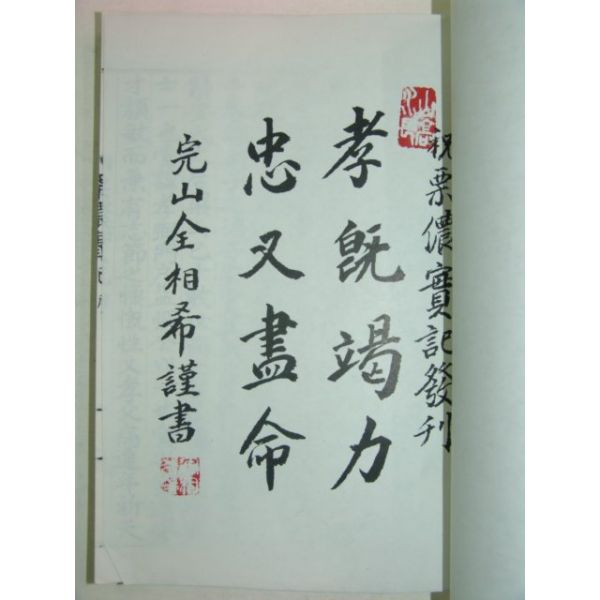 祝栗儂實記發刊
孝旣竭力
忠又盡命
完山全相希謹書